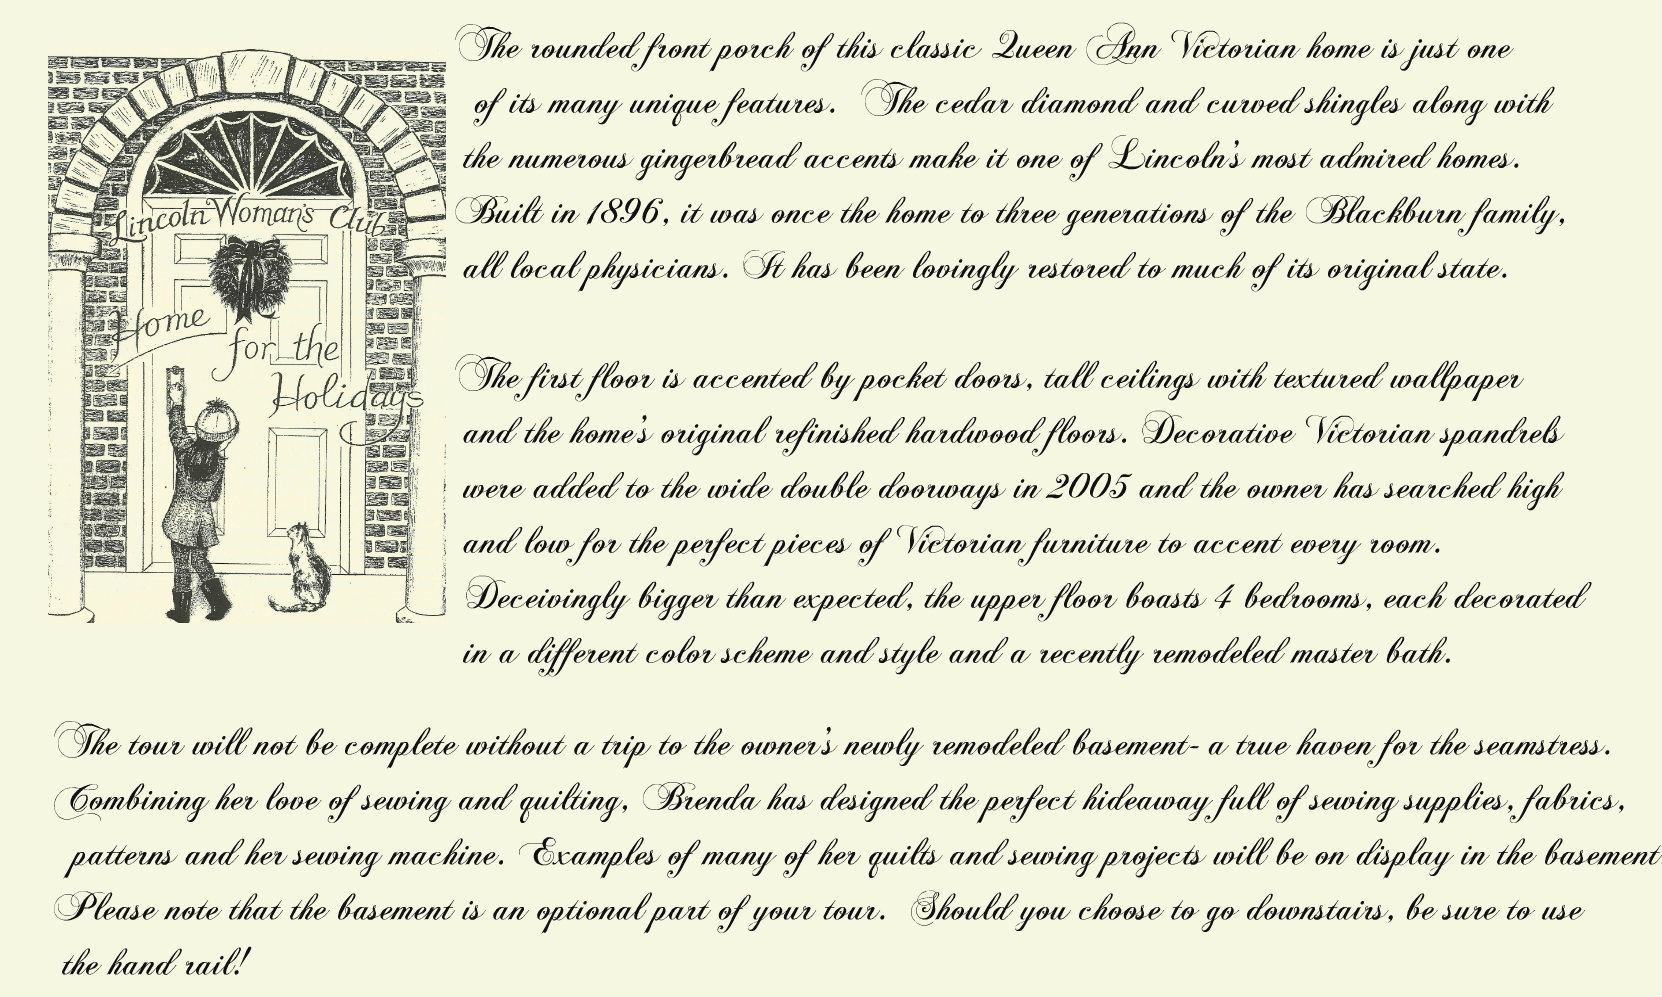 Lincoln Woman's Club
Home
for the
Holidays
The rounded front porch of this classic Queen Ann Victorian home is just one
of its many unique features. The cedar diamond and curved shingles along with
the numerous gingerbread accents make it one of Lincoln's most admired homes.
Built in 1896, it was once the home to three generations of the Blackburn family,
all local physicians. It has been lovingly restored to much of its original state.
The first floor is accented by pocket doors, tall ceilings with textured wallpaper
and the home's original refinished hardwood floors. Decorative Victorian spandrels
were added to the wide double doorways in 2005 and the owner has searched high
and low for the perfect pieces of Victorian furniture to accent every room.
Deceivingly bigger than expected, the upper floor boasts 4 bedrooms, each decorated
in a different color scheme and style and a recently remodeled master bath.
The tour will not be complete without a trip to the owner's newly remodeled basement- a true haven for the seamstress.
Combining her love of sewing and quilting, Brenda has designed the perfect hideaway full of sewing supplies, fabrics,
patterns and her sewing machine. Examples of many of her quilts and sewing projects will be on display in the basement
Please note that the basement is an optional part of your tour. Should you choose to go downstairs, be sure to use
the hand rail!